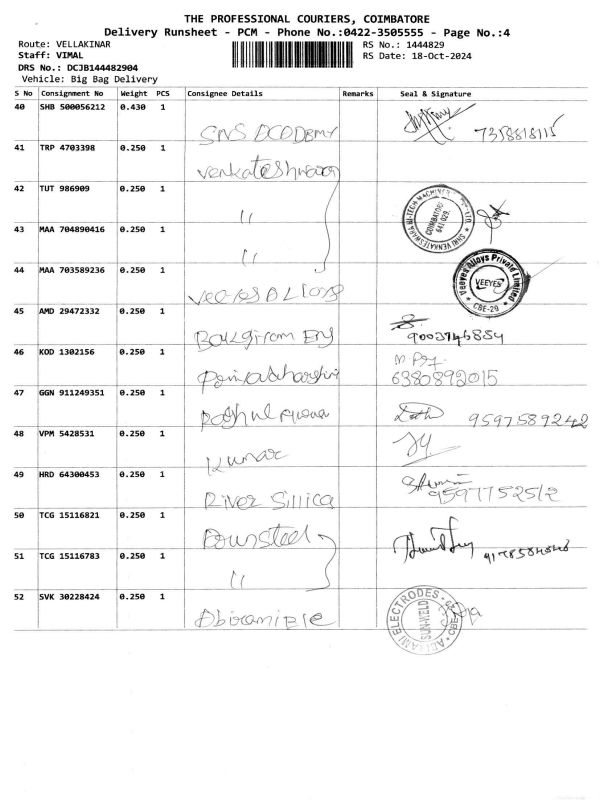 THE PROFESSIONAL COURIERS, COIMBATORE
Delivery Runsheet - PCM - Phone No.:0422-3505555 - Page No.:4
Route: VELLAKINAR RS No.: 1444829
Staff: VIMAL RS Date: 18-Oct-2024
DRS No.: DCJB144482904
Vehicle: Big Bag Delivery
S No Consignment No Weight PCS Consignee Details Remarks Seal & Signature
40 SHB 500056212 0.430 1
SNS 7358818115
41 TRP 4703398 0.250 1
42 TUT 986909 0.250 1
" SHRI VENKATESWARA HI-TECH MACHINERY PVT LTD. COIMBATORE 641 029.
43 MAA 704890416 0.250 1
"
44 MAA 703589236 0.250 1
Veeyes Alloys Private Limited VEEYES CBE-29
45 AMD 29472332 0.250 1
Eng 9003746884
46 KOD 1302156 0.250 1
6380892015
47 GGN 911249351 0.250 1
9597589242
48 VPM 5428531 0.250 1
Kumar
49 HRD 64300453 0.250 1
River Sillica 9597752512
50 TCG 15116821 0.250 1
51 TCG 15116783 0.250 1
"
52 SVK 30228424 0.250 1
ABIRAMI ELECTRODES SUN-WELD